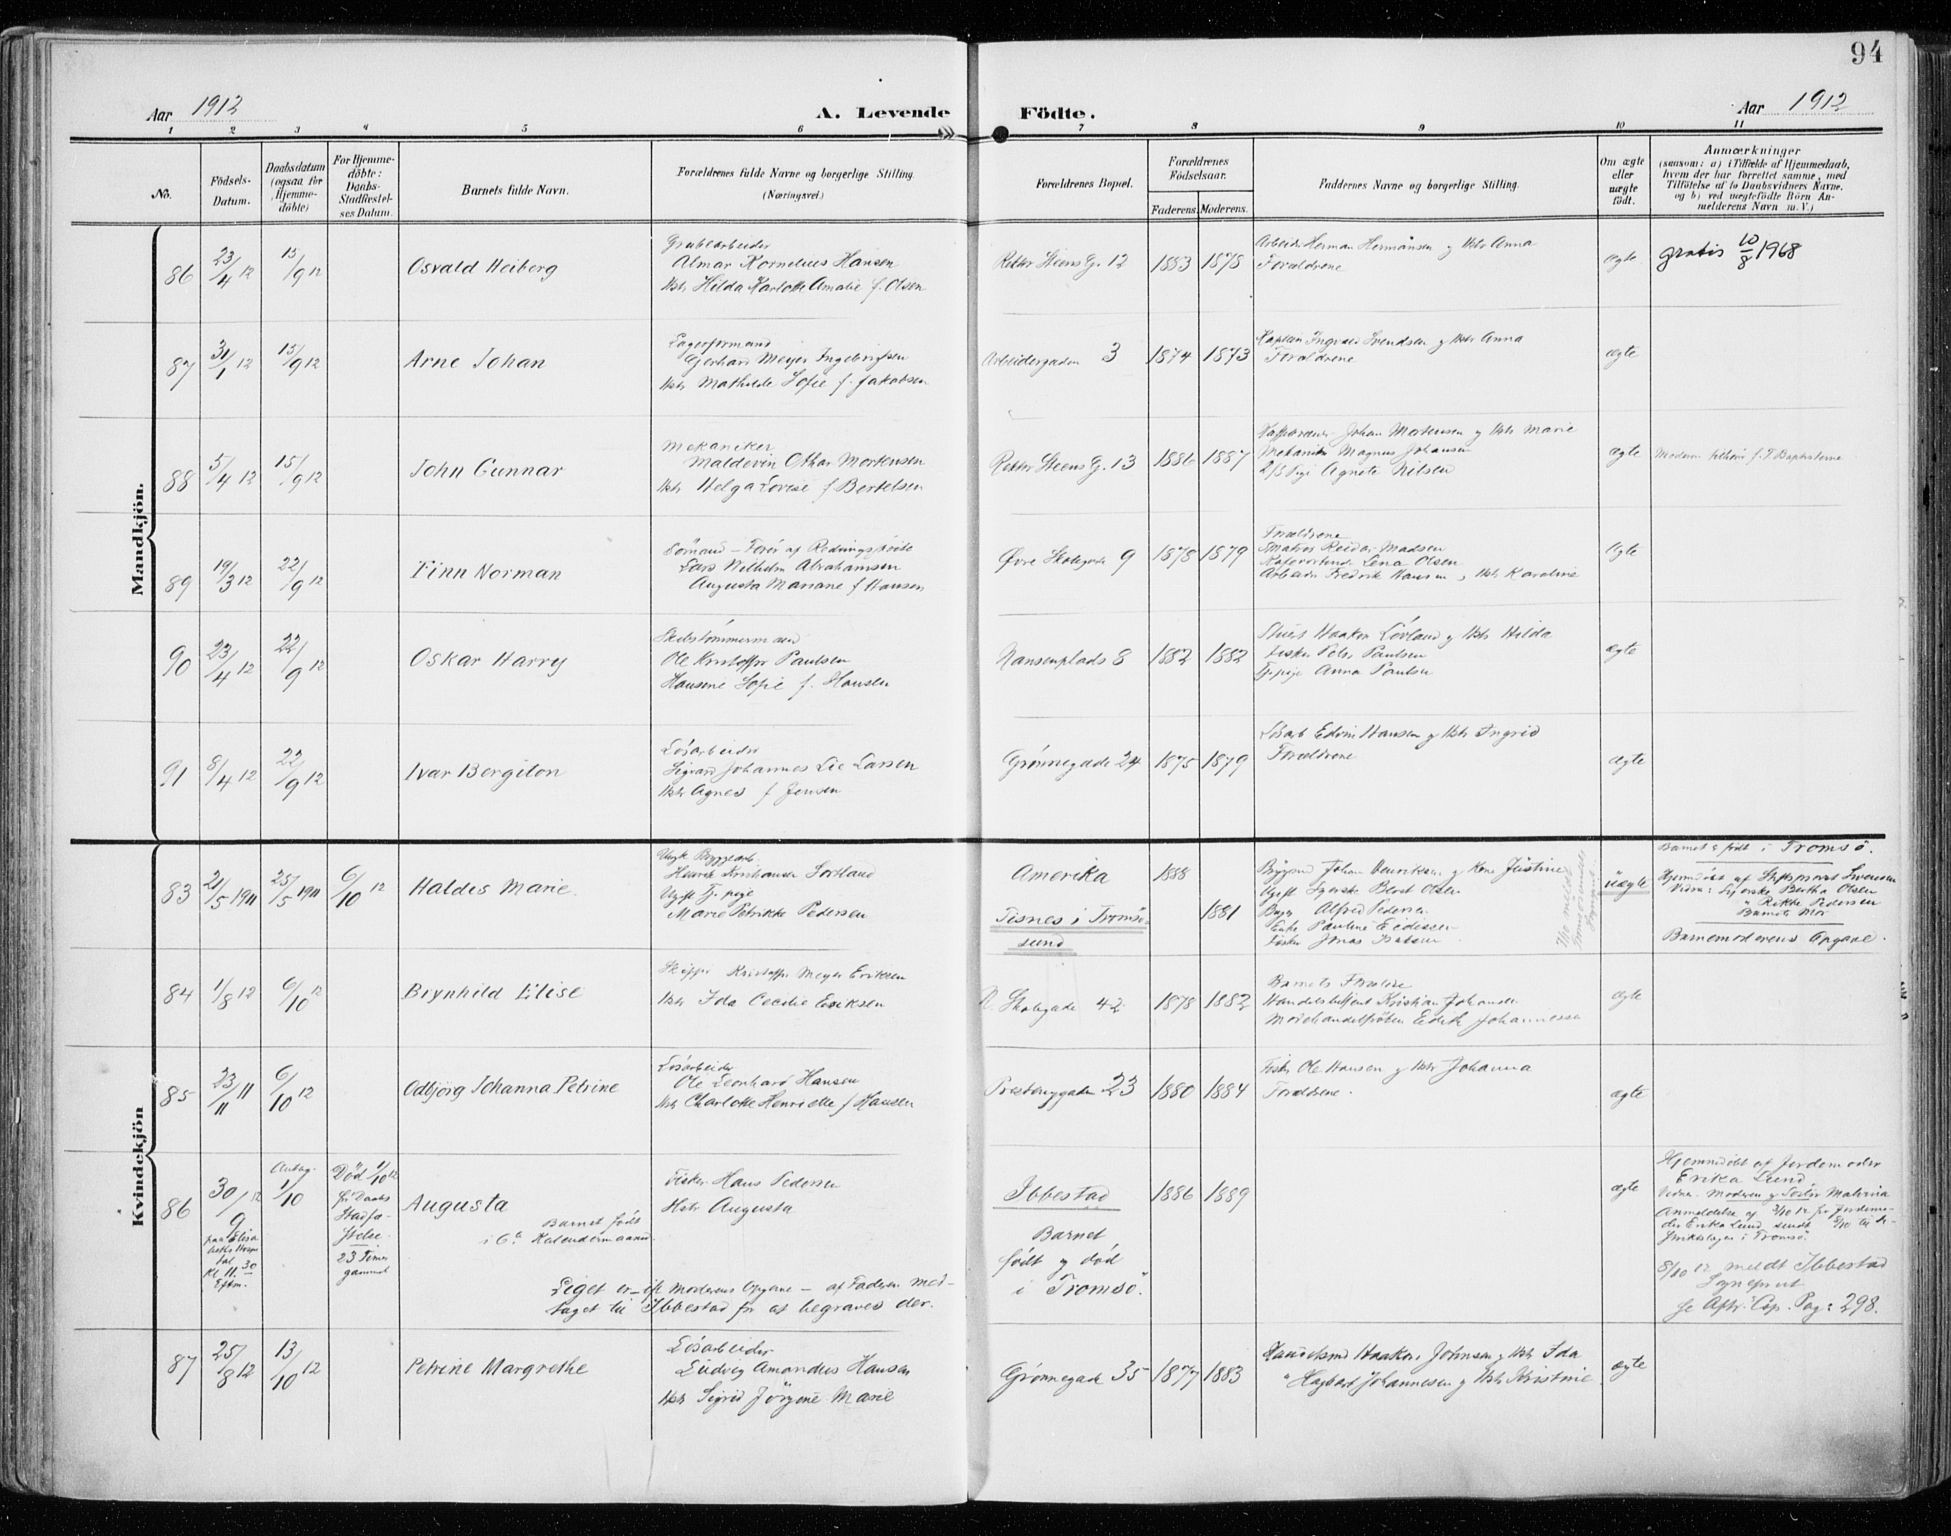 94
Aar 1912 A. Levende Födte. Aar 1912
1 2 3 4 5 6 7 8 9 10 11
No.
Födsels-
Datum.
Daabsdatum
(ogsaa for
Hjemme-
döbte)
For Hjemme-
döbte:
Daabs-
Stadfæstel-
ses Datum.
Barnets fulde Navn.
Forældrenes fulde Navne og borgerlige Stilling.
(Næringsvei.)
Forældrenes Bopæl.
Forældrenes
Födselsaar.
Faderens. Moderens.
Faddernes Navne og borgerlige Stilling.
Om ægte
eller
uægte
født.
Anmærkninger
(saasom: a) i Tilfælde af Hjemmedaab,
hvem der har forrettet samme, med
Tilföielse af to Daabsvidners Navne.
og b) ved uægtefödte Börn An-
melderens Navn m. V.)
Mandkjön.
86 23/4 12 15/9 12 Osvald Heiberg
Grubearbeider
Almar Kornelius Hansen
Hstr Hilda Karlotte Amalie f. Olsen
Rektor Steens G. 12 1883 1878
Arbeider Herman Hermansen og Hstr Anna
Forældrene
ægte
gratis 10/8 1968
87 31/1 12 15/9 12 Arne Johan
Lagerformand
Gerhard Meyer Ingebrigtsen
Hstr Mathilde Sofie f. Jakobsen
Arbeidergaden 3 1874 1873
Kaptein Ingvald Svendsen og Hstr Anna
Forældrene
ægte
88 5/4 12 15/9 12 John Gunnar
Mekaniker
Maldevin Othar Mortensen
Hstr Helga Lovise f Bertelsen
Rektor Steens G. 13 1886 1887
Johan Mortensen og Hstr Marie
Mekaniker Magnus Johansen
Pige Agnete Nilsen
ægte
Modern tilhører f. T. Baptisterne
89 19/3 12 22/9 12 Finn Norman
Sømand – Fører af Redningsskøite
Lars Wilhelm Abrahamsen
Augusta Mariane f Hansen
Øvre Skolegade 9 1878 1879
Forældrene
Matros Reidar Madsen
Lena Olsen
Arbeider Fredrik Hansen og Hstr Karoline
ægte
90 23/4 12 22/9 12 Oskar Harry
Skibstømmermand
Ole Kristoffer Paulsen
Hansine Sofie f. Hansen
Nansenplads 8 1882 1882
Haakon Lövland og Hstr Hilda
Fisker Peter Paulsen
Tj. pige Anna Paulsen
ægte
91 8/4 12 22/9 12 Ivar Bergiton
Lösarbeider
Sigvard Johannes Lie Larsen
Hstr Agnes f Jensen
Grønnegade 24 1875 1879
Lösarb Edvin Hansen og Hstr Ingrid
Forældrene
ægte
Kvindekjön
83 21/5 1911 25/5 1911 6/10 12 Haldis Marie
Ungk. Byggearb.
Henrik Kristiansen Sortland
Ugift Tj. pige
Marie Petrikke Pedersen
Amerika 1888
Tisnes i Tromsö-
sund 1881
Johan Henriksen og Kone Justine
Ugift Syerske Berta Olsen
Alfred Pedersen
Enke Pauline Eidissen
Fisker Jonas
uægte
Barnet er født i Tromsö.
Hjemdöbt af Stiftsprovst Svensen
Vidner: Syerske Bertha Olsen
" Rikke Pedersen
Barnets Mor
Barnemoderens Opgave.
84 1/8 12 6/10 12 Brynhild Elise
Skipper Kristoffer Meyer Eriksen
Hstr Ida Cecilie Eriksen
N. Skolegade 42 1878 1882
Barnets Forældre
Handelsbetjent Kristian Johansen
Edith Johannessen
ægte
85 23/11 11 6/10 12 Odbjörg Johanna Petrine
Lösarbeider
Ole Leonhard Hansen
Hstr Charlotte Henriette f Hansen
Prestenggaden 23 1880 1884
Fisker Ole Hansen og Hstr Johanna
Forældrene.
ægte
86 30/9 12
paa Elisa
beths Hospi
tal
Kl. 11.30
Eftm.
Antag.
1/10
Död 1/10 12
før Daabs
Stadfæ-
stelse
23 Timer
gammel
Augusta
Barnet født
i 6te Kalendermaaned
Fisker Hans Pedersen
Hstr Augusta
Liget er – eft Moderens Opgave – af Faderen med-
taget til Ibbestad for at begraves der.
Ibbestad
Barnet
født og död
i Tromsö.
1886 1889
ægte
Hjemmdöbt af Jordemoder
Erika Lund
Vidner: Moderen og Söster Mathina
Anmeldelse af 3/10 12 fra Jordemo-
der Erika Lund, sendt 5/10 til
i Tromsö
8/10 12 meldt Ibbestad
Sogneprest
se Aftr. Cop. Pag: 298.
87 25/8 12 13/10 12 Petrine Margrethe
Lösarbeider
Ludvig Amandus Hansen
Hstr Sigrid Jörgine Marie
Grønnegade 35 1877 1883
Handelsmd Haakon Johnsen og Hstr Ida
" Hagbart Johannesen og Hstr Kristine
ægte